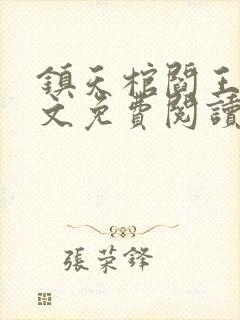 鎮天棺閻王
文免費閱讀
張荣鋒